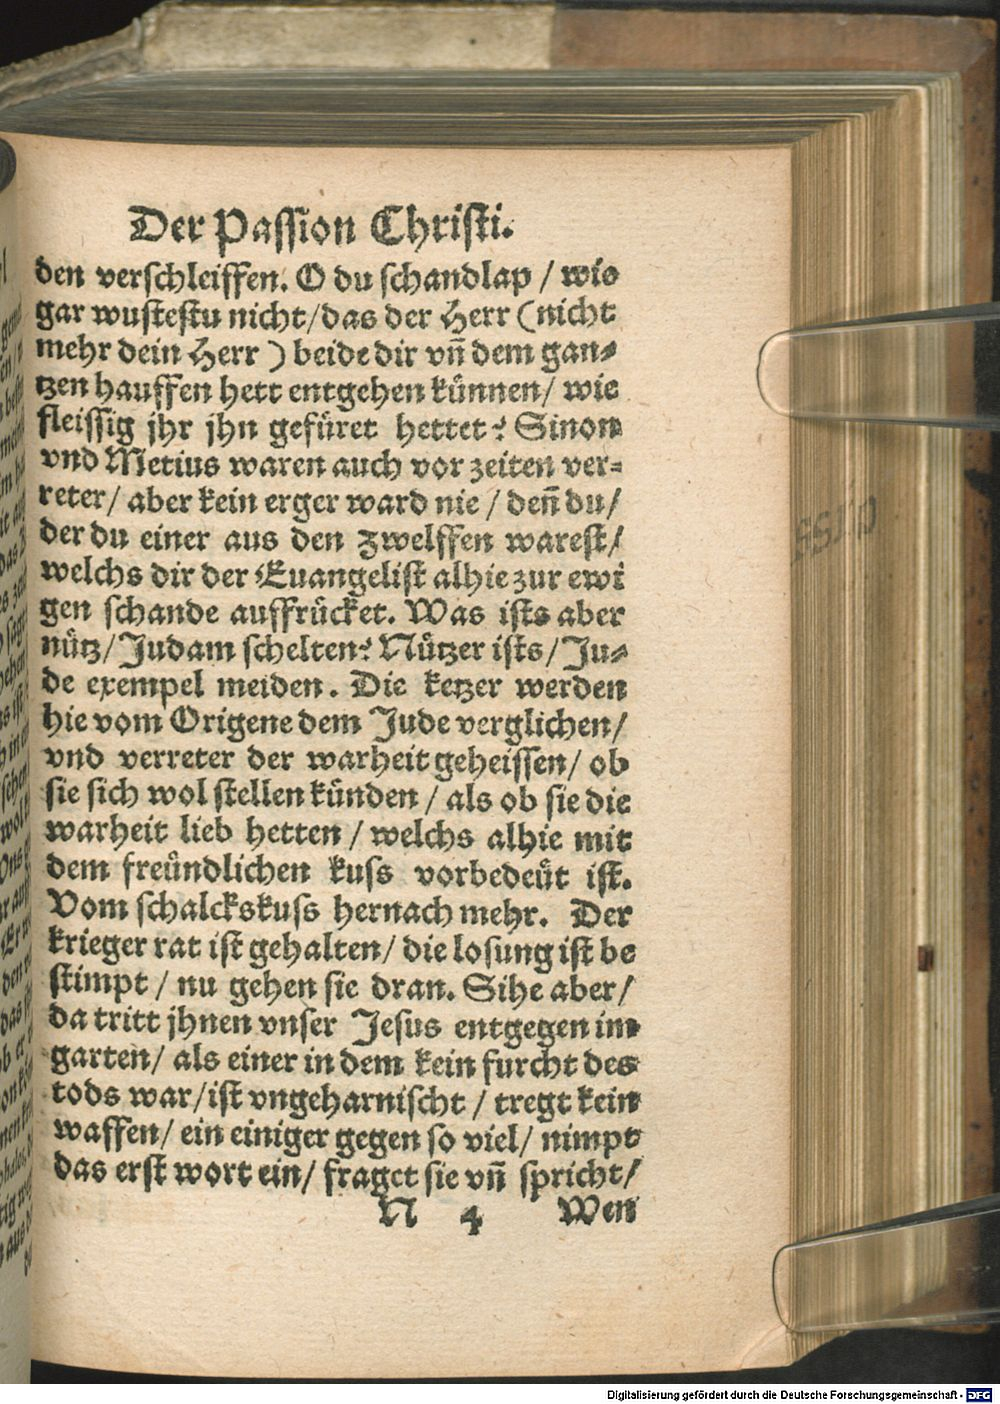 Der Passion Christi.
den verschleiffen. O du schandlap / wie
gar wustestu nicht/das der Herr (nicht
mehr dein Herr ) beide dir vñ dem gan⸗
tzen hauffen hett entgehen künnen/ wie
fleissig jhr jhn gefüret hettet? Sinon
vnd Metius waren auch vor zeiten ver⸗
reter/ aber kein erger ward nie / deñ du/
der du einer aus den zwelffen warest/
welchs dir der Euangelist alhie zur ewi
gen schande auffrücket. Was ists aber
nütz/Judam schelten? Nützer ists/Ju⸗
de exempel meiden. Die ketzer werden
hie vom Origene dem Jude verglichen/
vnd verreter der warheit geheissen/ ob
sie sich wol stellen künden / als ob sie die
warheit lieb hetten / welchs alhie mit
dem freündlichen kuss vorbedeüt ist.
Vom schalckskuss hernach mehr. Der
krieger rat ist gehalten/ die losung ist be
stimpt / nu gehen sie dran. Sihe aber/
da tritt jhnen vnser Jesus entgegen im
garten/ als einer in dem kein furcht des
tods war/ist vngeharnischt / tregt kein
waffen/ ein einiger gegen so viel/ nimpt
das erst wort ein/ fraget sie vñ spricht/
N 4 Wen
Digitalisierung gefördert durch die Deutsche Forschungsgemeinschaft - DFG